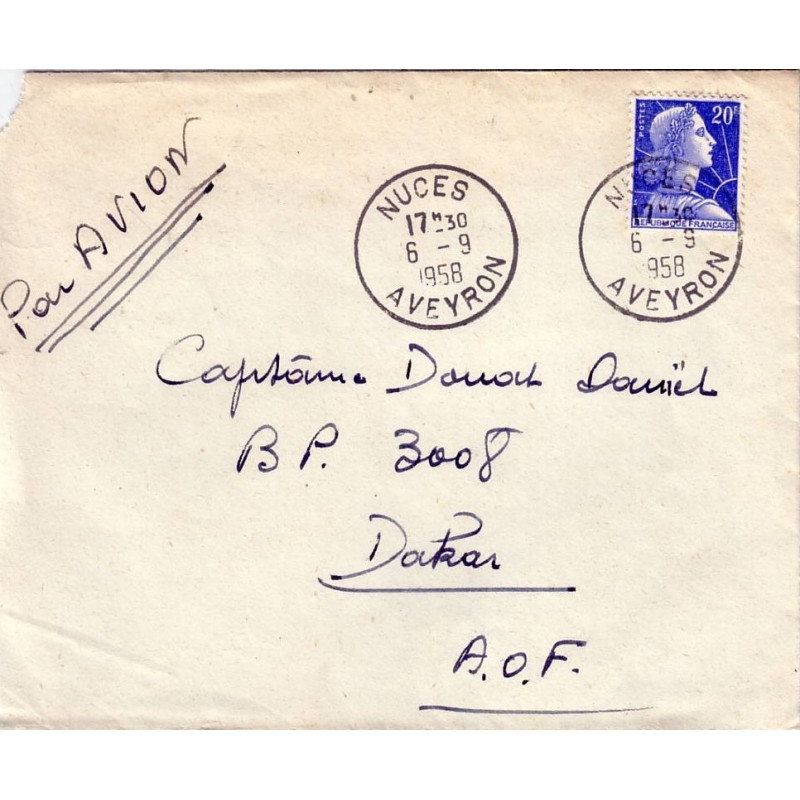 Par AVION
NUCES
17H30
6 - 9
1958
AVEYRON
POSTES
20F
REPUBLIQUE FRANÇAISE
NUCES
17H30
6 - 9
958
AVEYRON
Capitaine Donat Daniel
BP. 3008
Dakar
A.O.F.